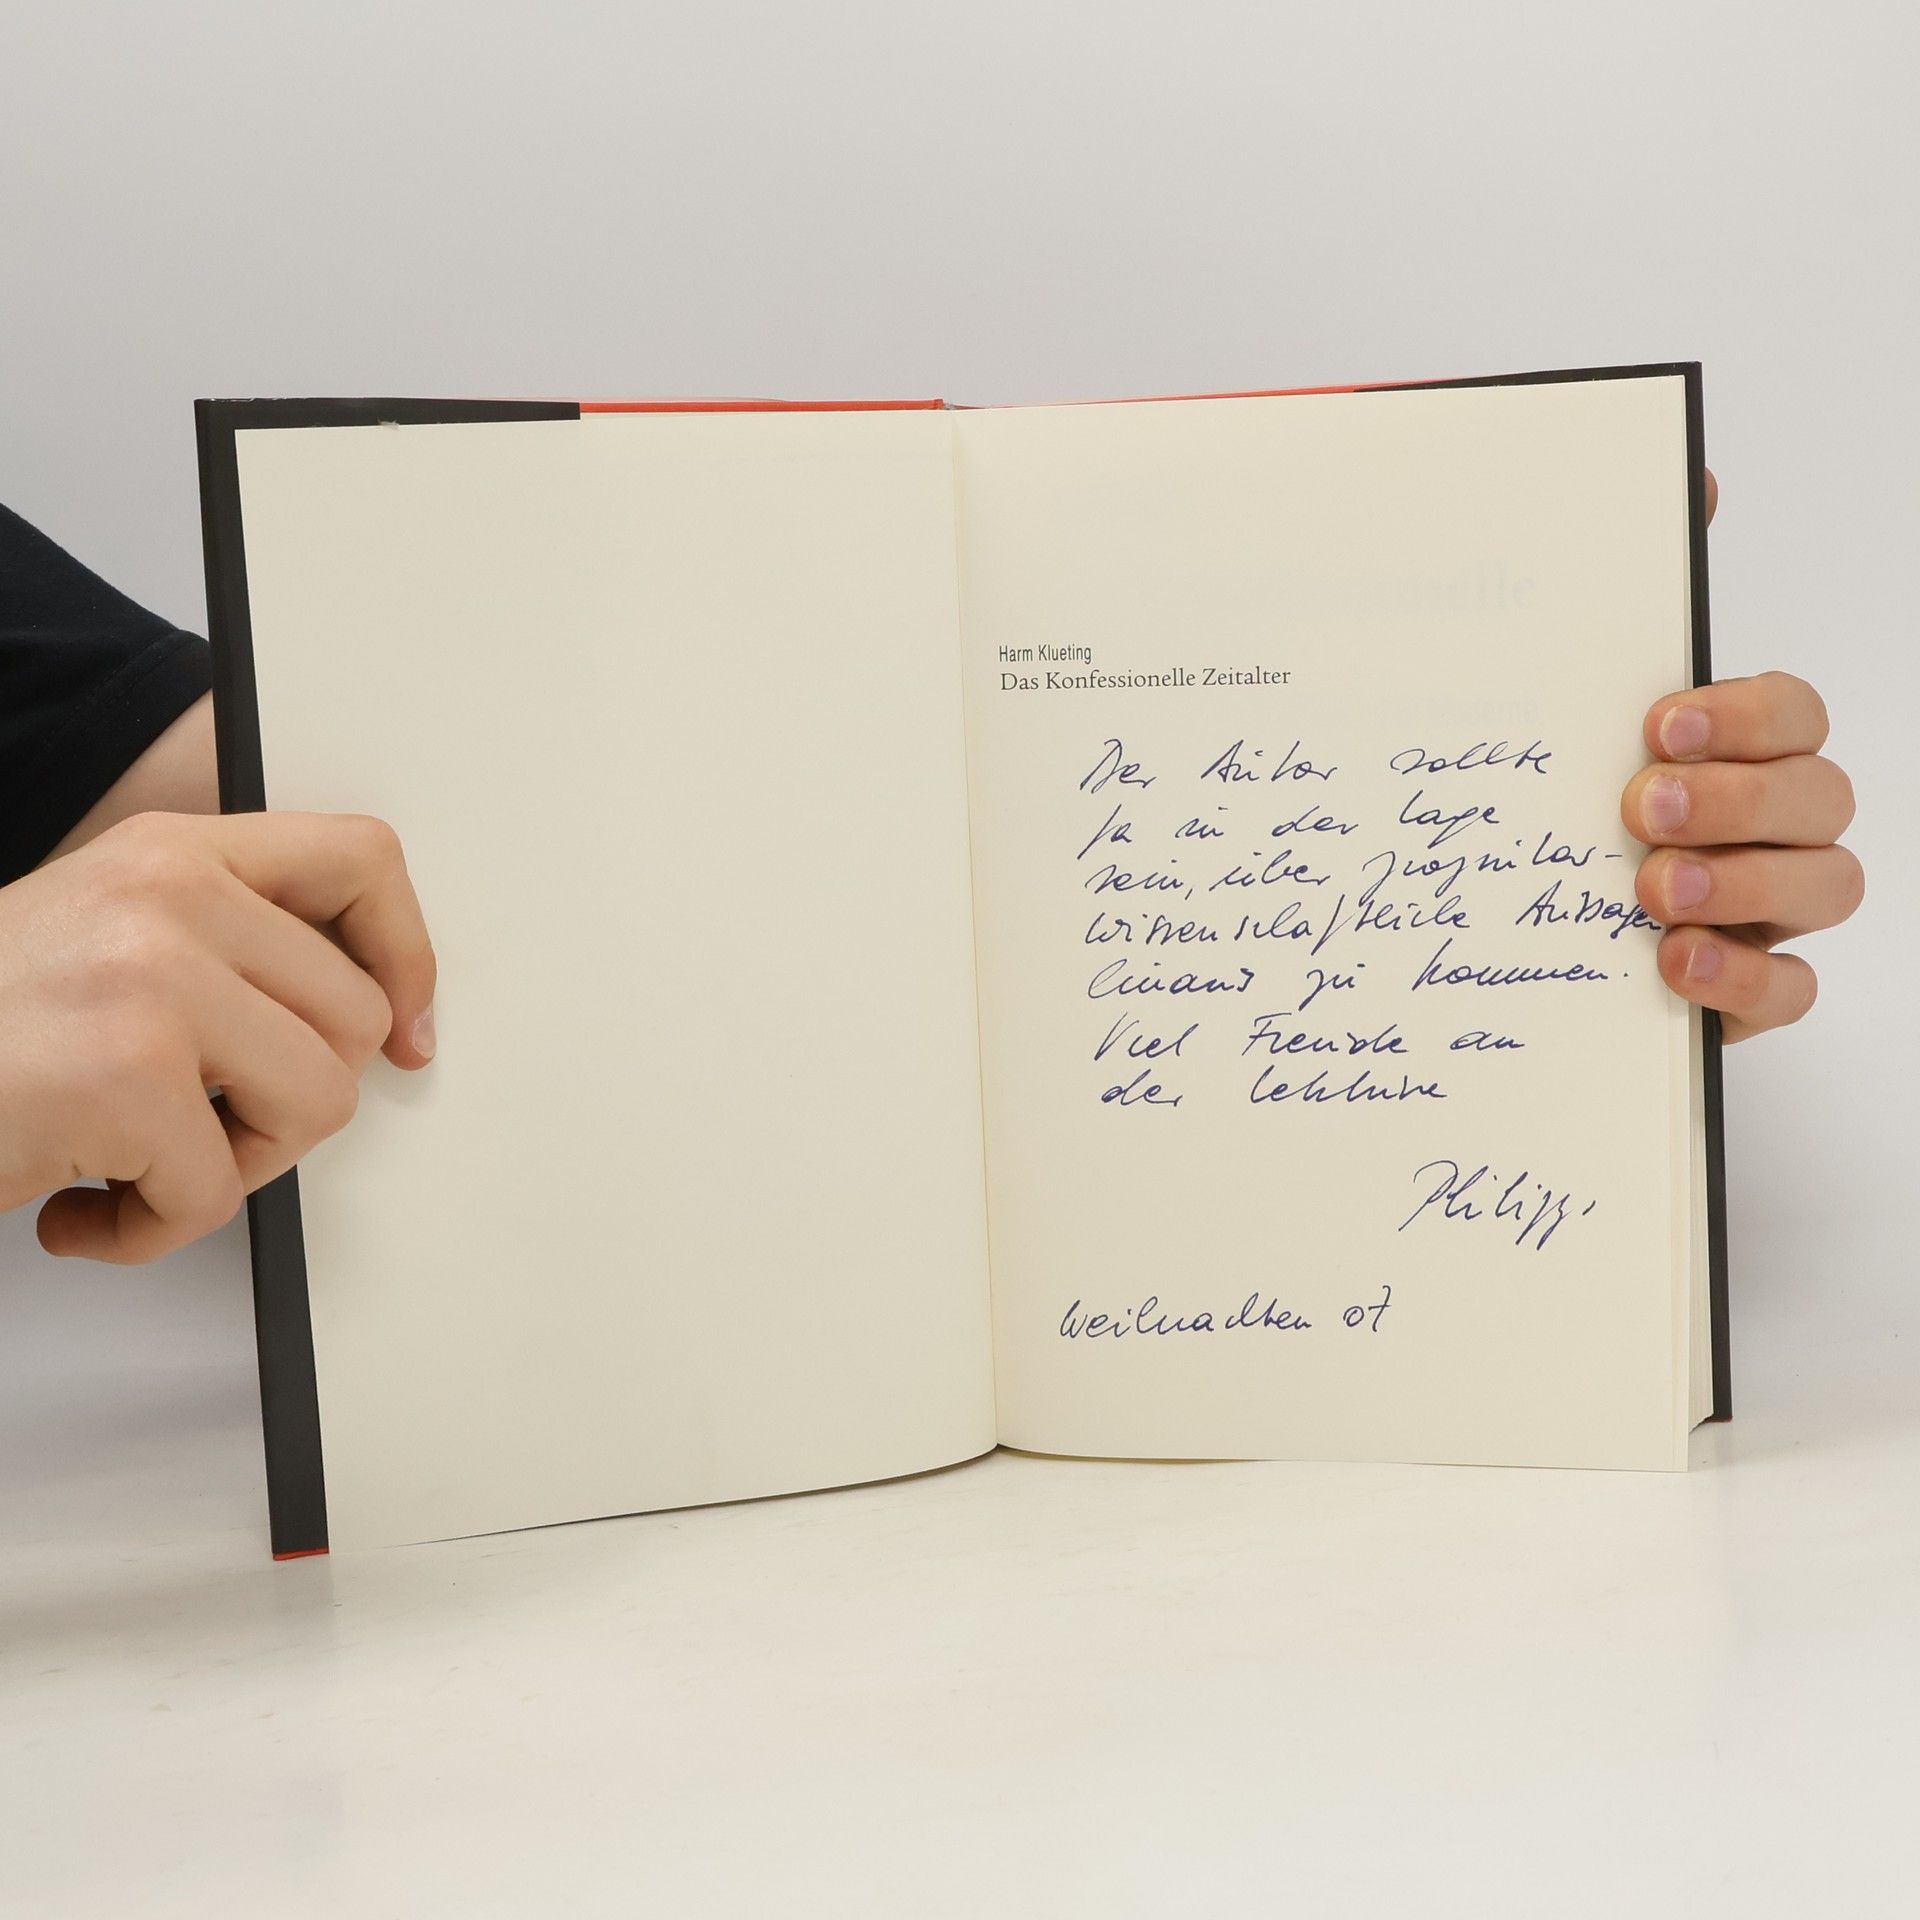 Harm Klueting
Das Konfessionelle Zeitalter
Der Autor sollte
ja in der Lage
sein, über
wissenschaftliche Aussagen
hinaus zu kommen.
Viel Freude an
der Lektüre
Philipp
Weihnachten 07